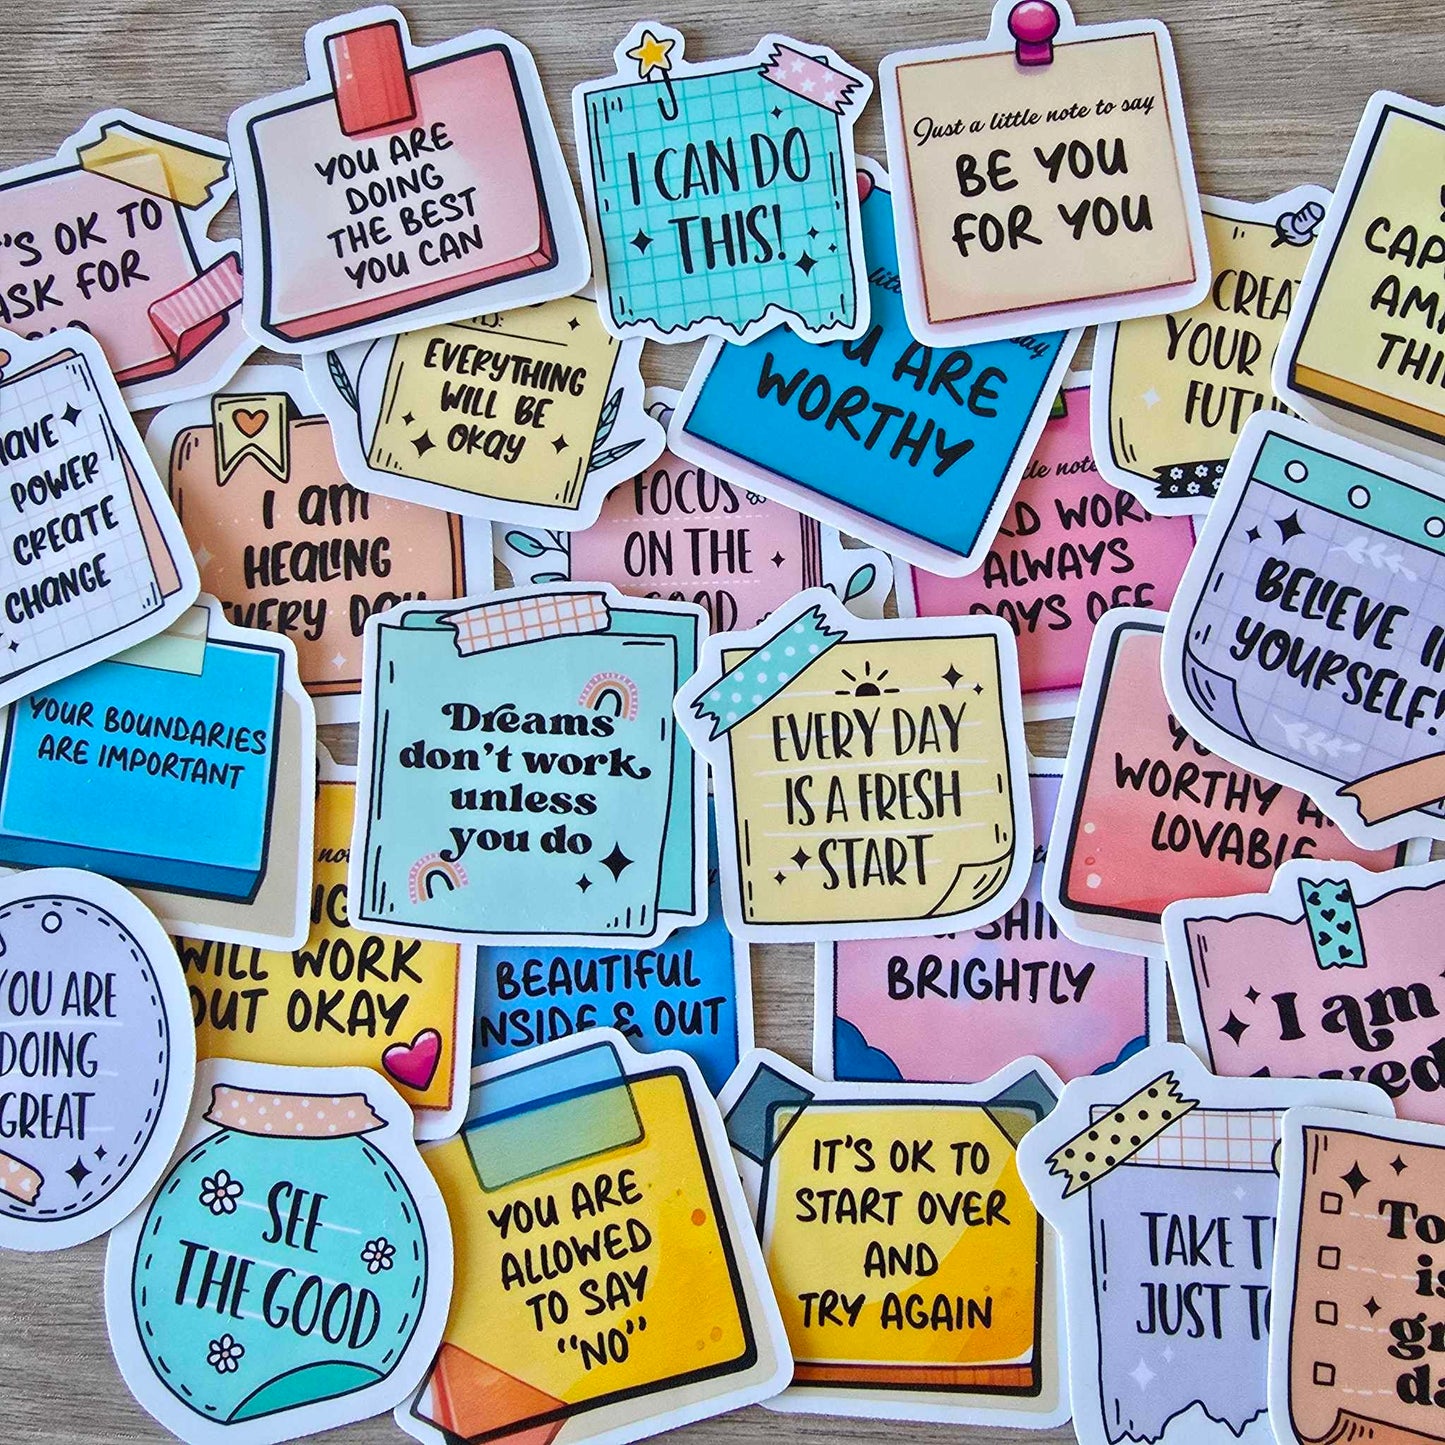 YOU ARE
DOING
THE BEST
YOU CAN
I CAN DO
THIS!
Just a little note to say
BE YOU
FOR YOU
OK TO
ASK FOR
EVERYTHING
WILL BE
OKAY
ARE
WORTHY
YOUR
POWER
CREATE
CHANGE
I am
HEALING
EVERY
FOCUS
ON THE
WORK
ALWAYS
OFF
BELIEVE
YOURSELF!
YOUR BOUNDARIES
ARE IMPORTANT
Dreams
don't work
unless
you do
EVERY DAY
IS A FRESH
START
WORTHY
LOVABLE
WILL WORK
OUT OKAY
BEAUTIFUL
INSIDE & OUT
BRIGHTLY
I am
YOU ARE
DOING
GREAT
SEE
THE GOOD
YOU ARE
ALLOWED
TO SAY
"NO"
IT'S OK TO
START OVER
AND
TRY AGAIN
TAKE
JUST